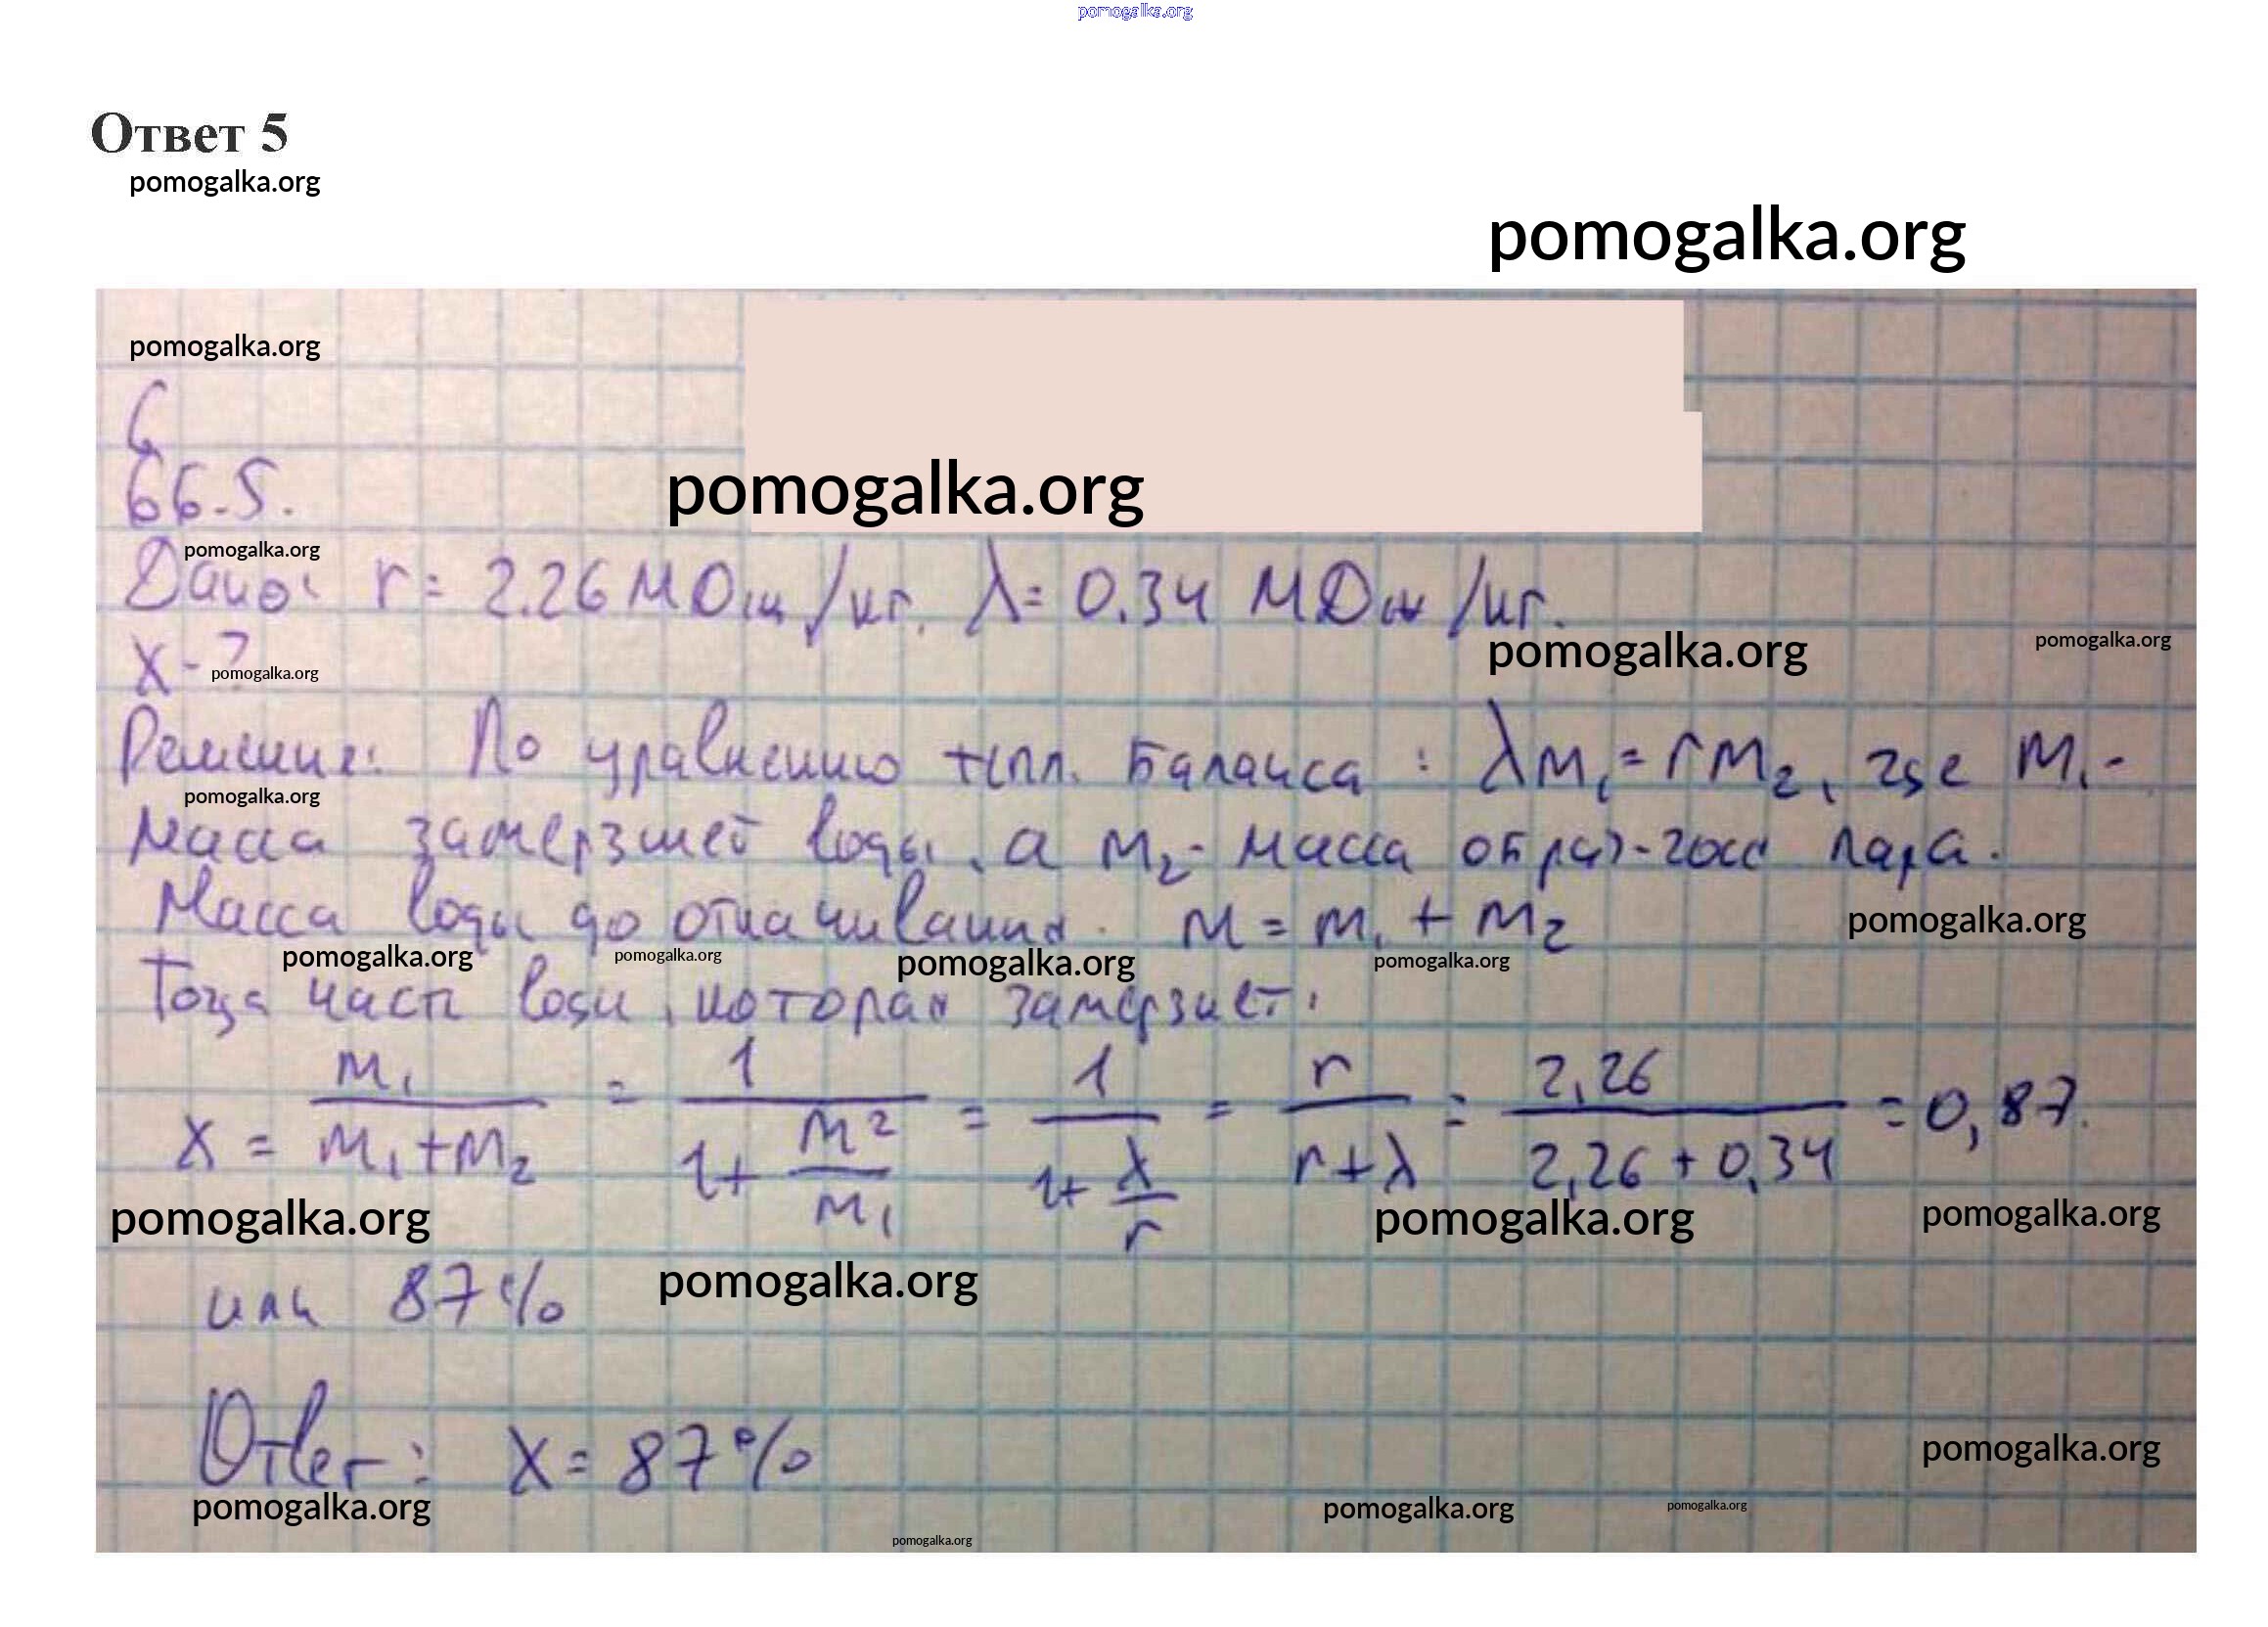 pomogalka.org
Ответ 5
pomogalka.org
pomogalka.org
pomogalka.org
66.5.
pomogalka.org
pomogalka.org
Дано: r = 2.26 МДж/кг. λ = 0.34 МДж/кг.
pomogalka.org
pomogalka.org pomogalka.org
x - ?
pomogalka.org
Решение: По уравнению тепл. баланса: λm₁ = rm₂, где m₁ -
pomogalka.org
масса замерзшей воды, а m₂ - масса образ-гося пара.
Масса воды до откачивания. m = m₁ + m₂
pomogalka.org
pomogalka.org pomogalka.org pomogalka.org pomogalka.org
Тогда часть воды, которая замерзнет:
x = m₁/(m₁+m₂) = 1/(1+m2/m₁) = 1/(1+λ/r) = r/(r+λ) = 2,26/(2,26+0,34) = 0,87.
pomogalka.org pomogalka.org pomogalka.org
pomogalka.org
или 87%
Ответ: x = 87%
pomogalka.org
pomogalka.org pomogalka.org pomogalka.org
pomogalka.org